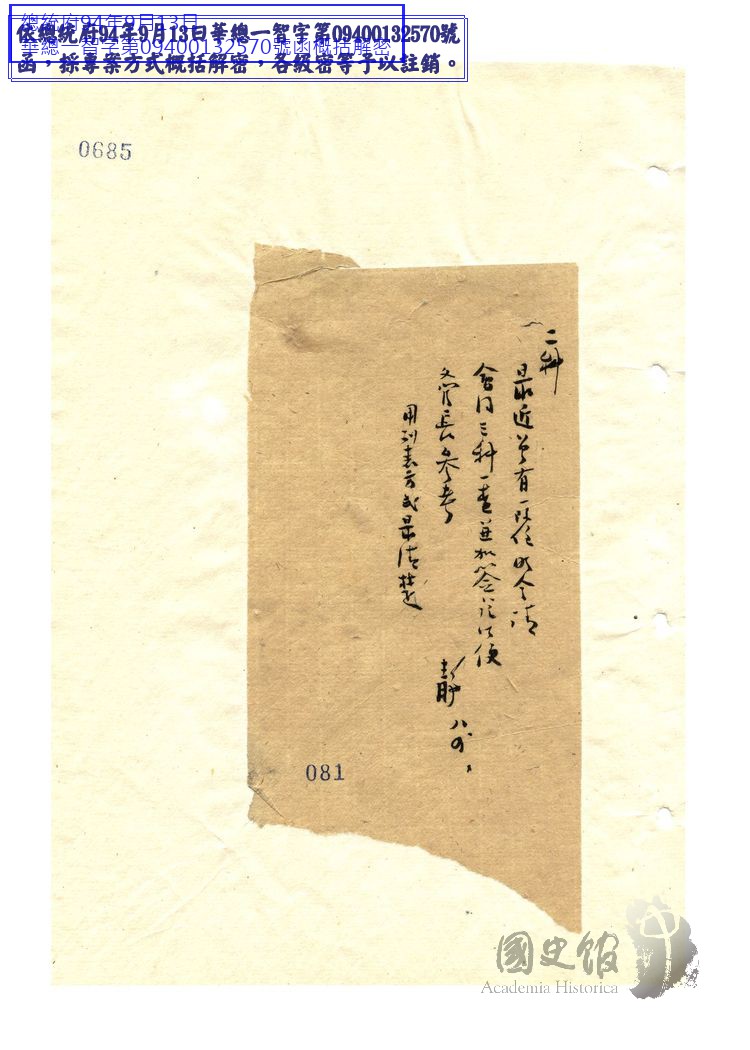 總統府94年9月13日
華總一智字第09400132570號函概括解密
依總統府94年9月13日華總一智字第09400132570號
函，採專案方式概括解密，各級密等予以註銷。
0685
二科
最近 有 令請
會同三科一查並 簽 以便
長參考
用列表方式最清楚
靜 八
081
國史館
Academia Historica